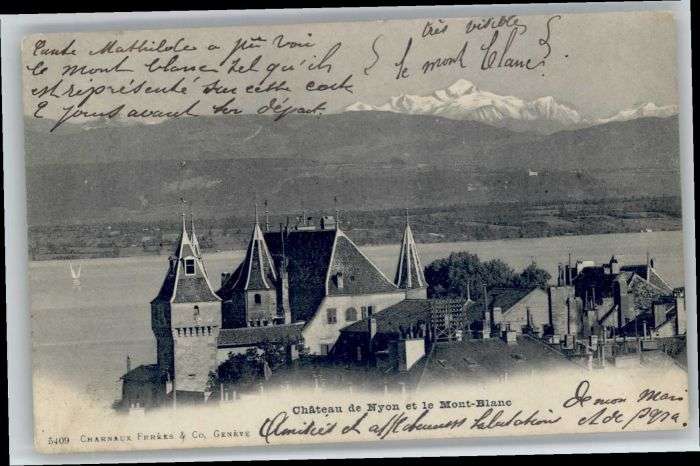 Tante Mathilde a pu voir
le mont blanc tel qu'il
est représenté sur cette carte
2 jours avant son départ
très visible
le mont blanc.
Château de Nyon et le Mont-Blanc
5409 CHARNAUX FRÈRES & Co, GENÈVE
Amitiés et affectueuses salutations
De mon Mari
et de